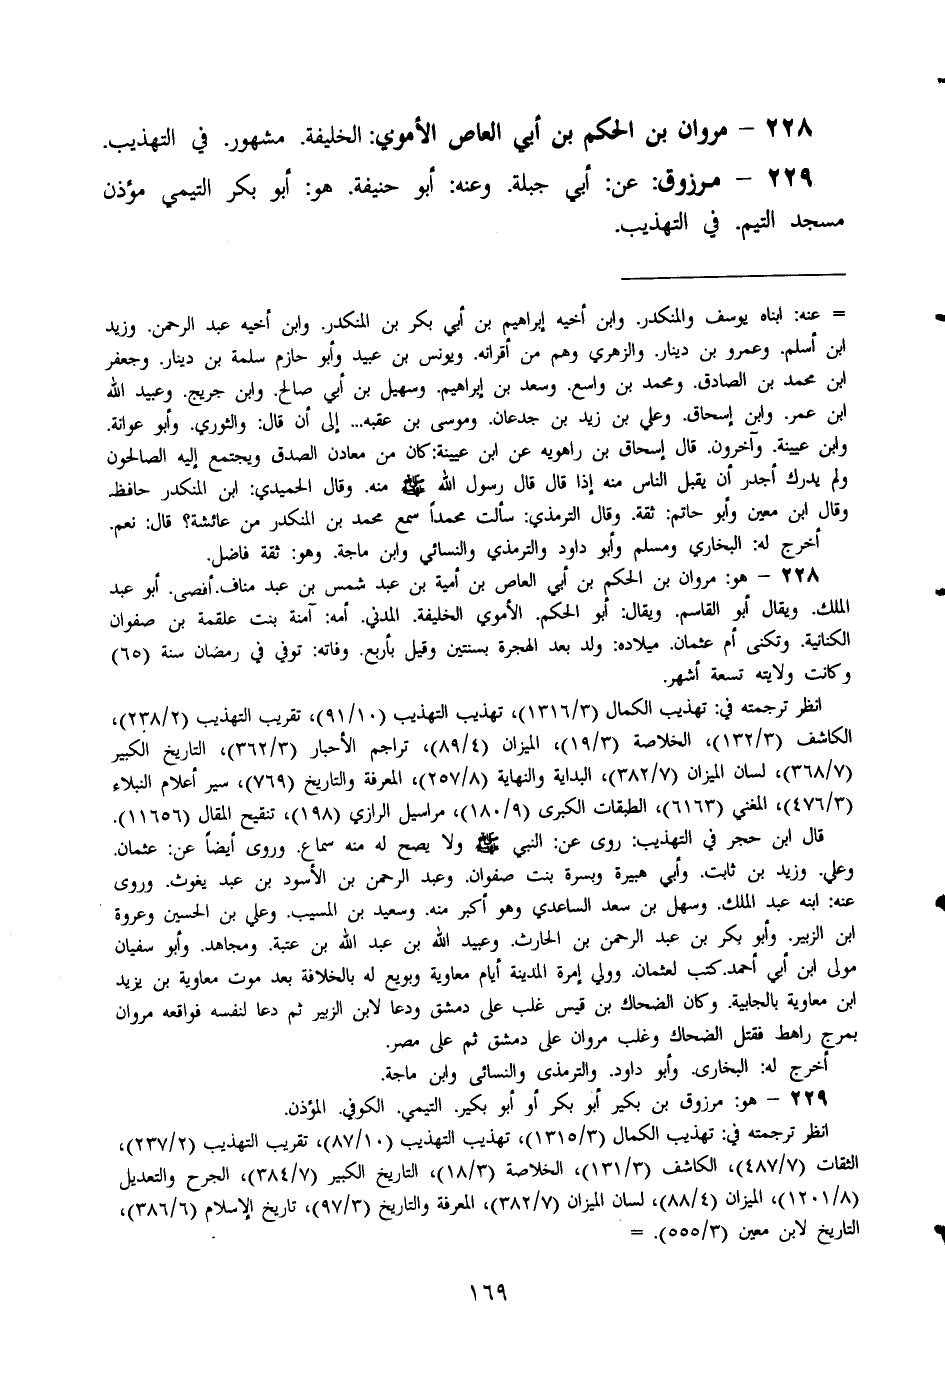 ٢٢٨ – مروان بن الحكم بن أبي العاص الأموي: الخليفة. مشهور. في التهذيب.
٢٢٩ – مرزوق: عن: أبي جبلة. وعنه: أبو حنيفة. هو: أبو بكر التيمي مؤذن
مسجد التيم. في التهذيب.
= عنه: ابناه يوسف والمنكدر. وابن أخيه إبراهيم بن أبي بكر بن المنكدر. وابن أخيه عبد الرحمن. وزيد
ابن أسلم. وعمرو بن دينار. والزهري وهم من أقرانه. ويونس بن عبيد وأبو حازم سلمة بن دينار. وجعفر
ابن محمد بن الصادق. ومحمد بن واسع. وسعد بن إبراهيم. وسهيل بن أبي صالح. وابن جريج. وعبيد الله
ابن عمر. وابن إسحاق. وعلي بن زيد بن جدعان. وموسى بن عقبه... إلى أن قال: والثوري. وأبو عوانة.
وابن عيينة. وآخرون. قال إسحاق بن راهويه عن ابن عيينة:كان من معادن الصدق ويجتمع إليه الصالحون
ولم يدرك أجدر أن يقبل الناس منه إذا قال قال رسول الله ﷺ منه. وقال الحميدي: ابن المنكدر حافظ.
وقال ابن معين وأبو حاتم: ثقة. وقال الترمذي: سألت محمداً سمع محمد بن المنكدر من عائشة؟ قال: نعم.
أخرج له: البخاري ومسلم وأبو داود والترمذي والنسائي وابن ماجة. وهو: ثقة فاضل.
٢٢٨ – هو: مروان بن الحكم بن أبي العاص بن أمية بن عبد شمس بن عبد مناف.أفصى. أبو عبد
الملك. ويقال أبو القاسم. ويقال: أبو الحكم. الأموي الخليفة. المدني. أمه: آمنة بنت علقمة بن صفوان
الكنانية. وتكنى أم عثمان. ميلاده: ولد بعد الهجرة بسنتين وقيل بأربع. وفاته: توفي في رمضان سنة (٦٥)
وكانت ولايته تسعة أشهر.
انظر ترجمته في: تهذيب الكمال (١٣١٦/٣)، تهذيب التهذيب (٩١/١٠)، تقريب التهذيب (٢٣٨/٢)،
الكاشف (١٣٢/٣)، الخلاصة (١٩/٣)، الميزان (٨٩/٤)، تراجم الأحبار (٣٦٢/٣)، التاريخ الكبير
(٣٦٨/٧)، لسان الميزان (٣٨٢/٧)، البداية والنهاية (٢٥٧/٨)، المعرفة والتاريخ (٧٦٩)، سير أعلام النبلاء
(٤٧٦/٣)، المغني (٦١٦٣)، الطبقات الكبرى (١٨٠/٩)، مراسيل الرازي (١٩٨)، تنقيح المقال (١١٦٥٦).
قال ابن حجر في التهذيب: روى عن: النبي ﷺ ولا يصح له منه سماع. وروى أيضاً عن: عثمان.
وعلي. وزيد بن ثابت. وأبي هبيرة وبسرة بنت صفوان. وعبد الرحمن بن الأسود بن عبد يغوث. وروى
عنه: ابنه عبد الملك. وسهل بن سعد الساعدي وهو أكبر منه. وسعيد بن المسيب. وعلي بن الحسين وعروة
ابن الزبير. وأبو بكر بن عبد الرحمن بن الحارث. وعبيد الله بن عبد الله بن عتبة. ومجاهد. وأبو سفيان
مولى ابن أبي أحمد.كتب لعثمان. وولي إمرة المدينة أيام معاوية وبويع له بالخلافة بعد موت معاوية بن يزيد
ابن معاوية بالجابية. وكان الضحاك بن قيس غلب على دمشق ودعا لابن الزبير ثم دعا لنفسه فواقعه مروان
بمرج راهط فقتل الضحاك وغلب مروان على دمشق ثم على مصر.
أخرج له: البخارى. وأبو داود. والترمذى والنسائى وابن ماجة.
٢٢٩ – هو: مرزوق بن بكير أبو بكر أو أبو بكير. التيمي. الكوفي. المؤذن.
انظر ترجمته في: تهذيب الكمال (١٣١٥/٣)، تهذيب التهذيب (٨٧/١٠)، تقريب التهذيب (٢٣٧/٢)،
الثقات (٤٨٧/٧)، الكاشف (١٣١/٣)، الخلاصة (١٨/٣)، التاريخ الكبير (٣٨٤/٧)، الجرح والتعديل
(١٢٠١/٨)، الميزان (٨٨/٤)، لسان الميزان (٣٨٢/٧)، المعرفة والتاريخ (٩٧/٣)، تاريخ الإسلام (٣٨٦/٦)،
التاريخ لابن معين (٥٥٥/٣). =
١٦٩